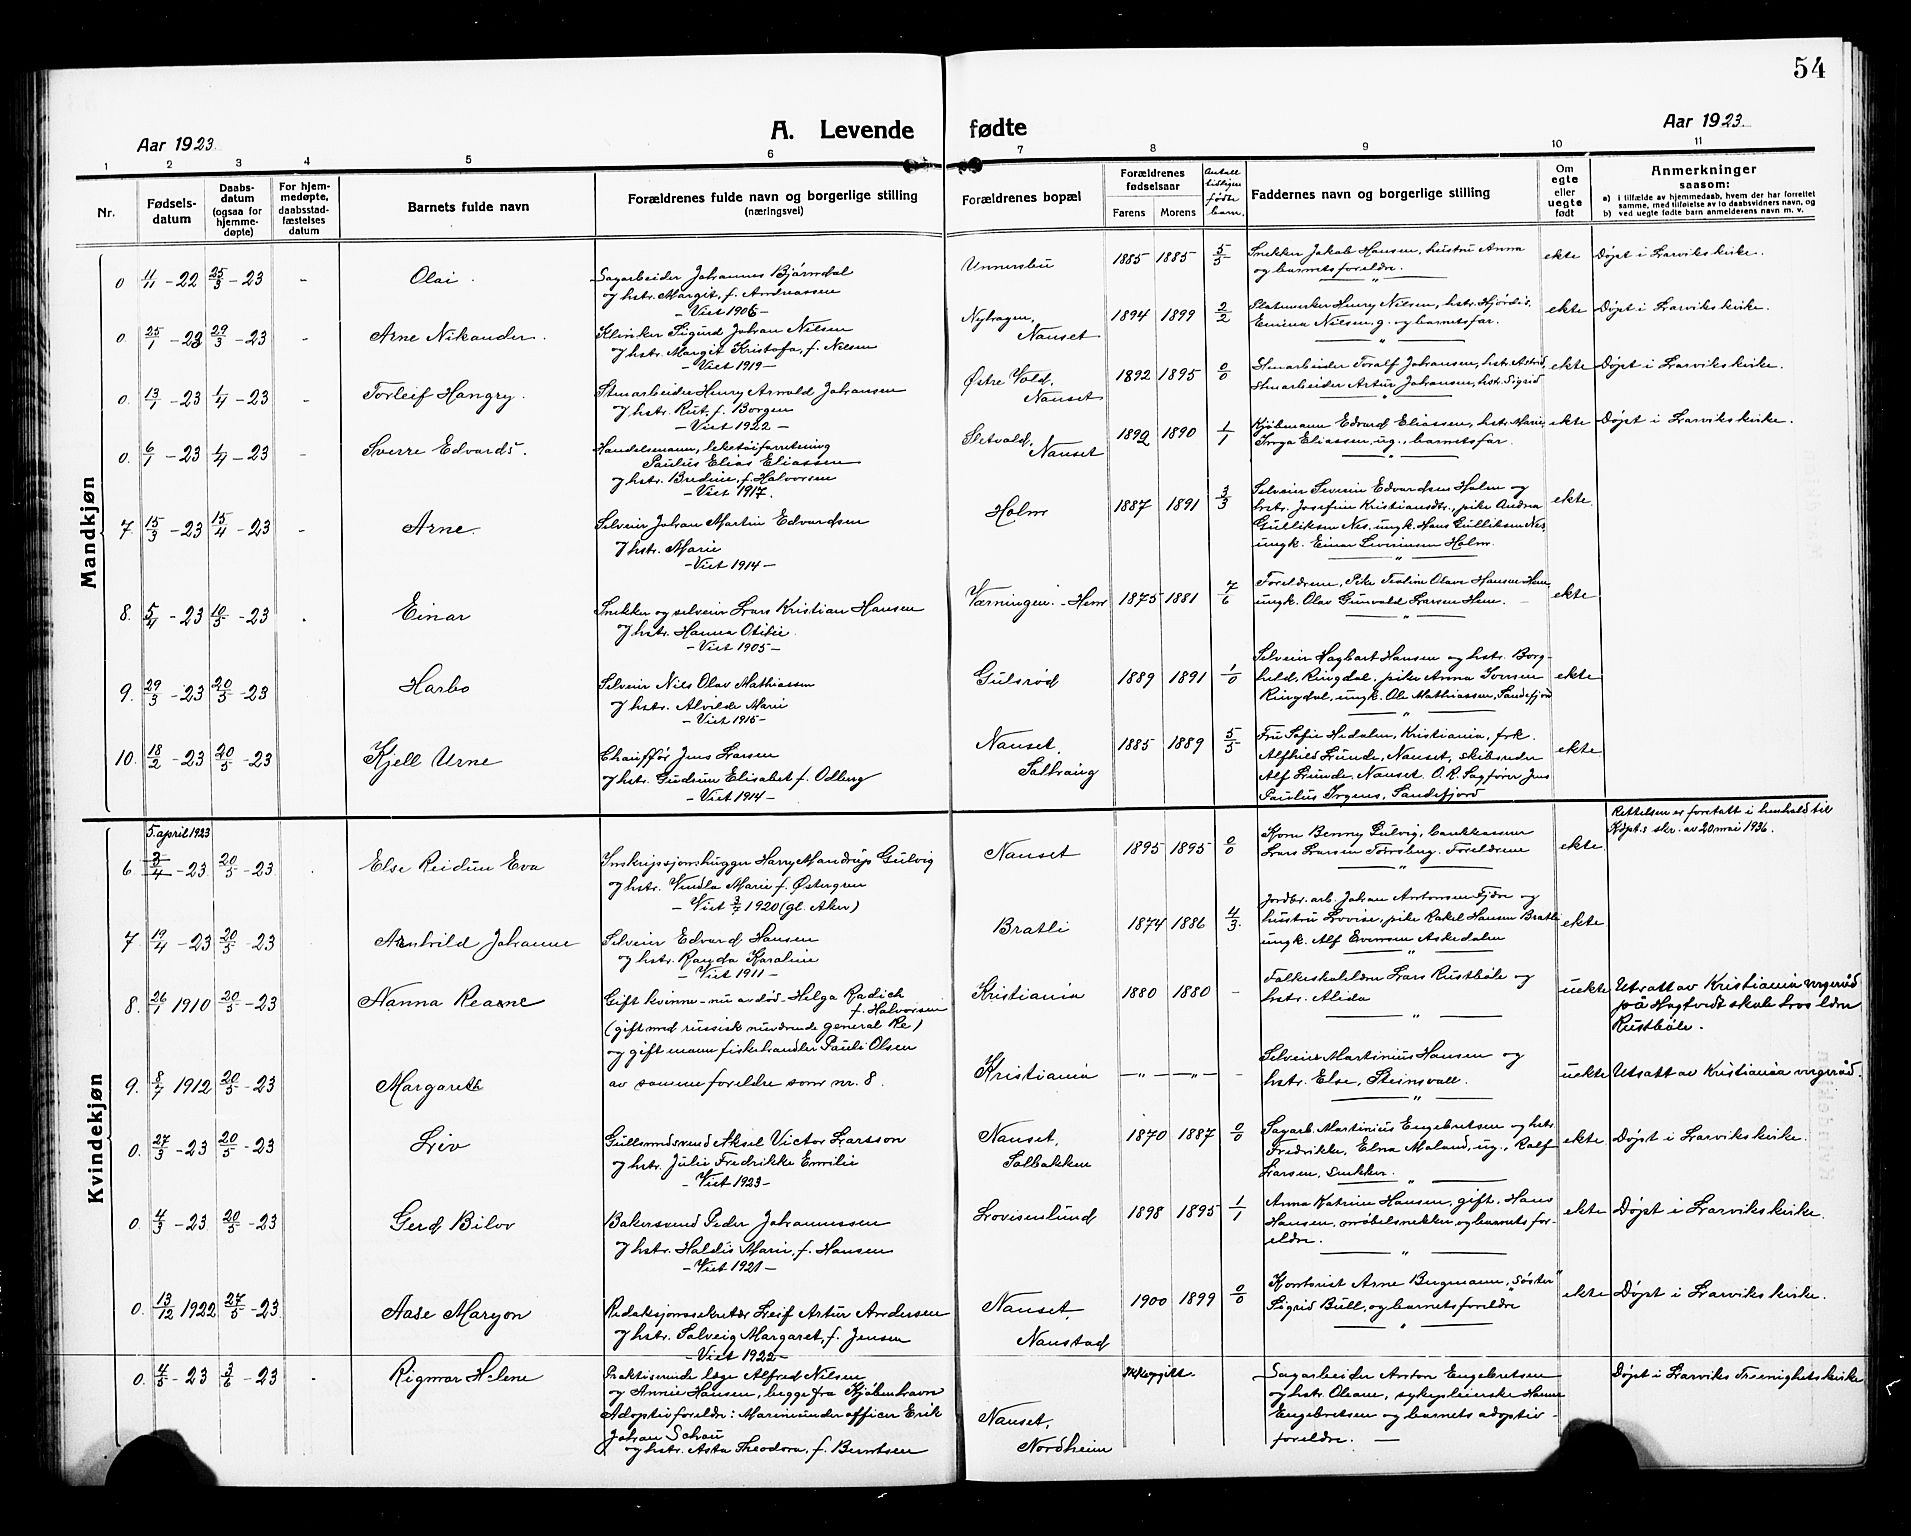 54
Aar 1923.
A. Levende fødte
Aar 1923.
1 2 3 4 5 6 7 8 9 10 11
Nr.
Fødsels-
datum
Daabs-
datum
(ogsaa for
hjemme-
døpte)
For hjem-
medøpte,
daabsstad-
fæstelses
datum
Barnets fulde navn
Forældrenes fulde navn og borgerlige stilling
(næringsvei)
Forældrenes bopæl
Forældrenes
fødselsaar
Farens Morens
Antall
tidligere
fødte
barn.
Faddernes navn og borgerlige stilling
Om
egte
eller
uegte
født
Anmerkninger
saasom:
a) i tilfælde av hjemmedaab, hvem der har forrettet
samme, med tilføielse av to daabsvidners navn, og
b) ved uegte fødte barn anmelderens navn m. v.
Mandkjøn
0 11/11 - 22 25/3 - 23 - Olai.
Sagarbeider Johannes Bjørndal
og hstr. Margit, f. Andreassen
- Viet 1906
Unnersbu 1885 1885 5/5
Snekker Jakob Hansen, hustru Anna
og barnets foreldre.
ekte Døpt i Larvik kirke.
0. 25/1 - 23 29/3 - 23 - Arne Nikander.
Klinker Sigurd Johan Nilsen
og hstr. Margit Kristofa, f. Nilsen
- Viet 1919 -
Nyhagen,
Nanset
1894 1899 2/2
Platearbeider Henry Nilsen, hstr. Hjørdis,
Emma Nilsen, g. og barnets far.
ekte Døpt i Larviks kirke.
0. 13/1 - 23 1/4 - 23 - Torleif Hangry.
Stenarbeider Henry Arnold Johansen
og hstr. Rut, f. Borgen
- Viet 1922 -
Østre Vold,
Nanset
1892 1895 0/0
Stenarbeider Toralf Johansen, hstr. Astrid,
Stenarbeider Artur Johansen, hstr. Sigrid
ekte Døpt i Larviks kirke.
0. 6/1 - 23 1/4 - 23 Sverre Edvards.
Handelsmann, leketøiforretning
Paulus Elias Eliassen
og hstr. Bredine, f. Halvorsen
- Viet 1917.
Sletvold,
Nanset
1892 1890 1/1
Kjøbmann Edvard Eliassen, hstr. Marie,
Inga Eliassen, ug., barnets far.
ekte Døpt i Larviks kirke.
7. 15/3 - 23 15/4 - 23 - Arne.
Selveier Johan Martin Edvardsen
og hstr. Marie
- Viet 1914 -
Holm 1887 1891 3/3
Selveier Severin Edvardsen Holm og
hstr. Josefine Kristiansdtr., pike Andrea
Gulliksen Nes, ungk. Hans Gulliksen Nes,
ungk. Einar Severinsen Holm.
ekte
8. 5/4 - 23 10/5 - 23 . Einar
Snekker og selveier Lars Kristian Hansen
og hstr. Hanna Otilie.
- Viet 1905 -
Værningen - Hem 1875 1881 7/6
Foreldrene, Pike Teoline Olava Hansen Hem,
ungk. Olav Gunvald Larsen Hem.
ekte
9. 29/3 - 23 20/5 - 23 Harbo
Selveier Nils Olav Mathiassen
og hstr. Alvilde Marie
- Viet 1915 -
Gulsrød 1889 1891 1/0
Selveier Hagbart Hansen og hstr. Borg-
hild, Ringdal, pike Anna Iversen
Ringdal, ungk. Ole Mathiassen, Sandefjord
ekte
10. 18/2 - 23 20/5 - 23 Kjell Urne
Chauffør Jens Larsen
og hstr. Gudrun Elisabet f. Odberg
- Viet 1914 -
Nanset,
Solhaug
1885 1889 5/5
Fru Sofie Hedalen, Kristiania, frk.
Alfhild Lunde, Nanset, skibsreder
Alf Lunde, Nanset. O.R. Sagfører Jens
Paulus Irgens, Sandefjord
ekte
Kvindekjøn
5. april 1923
6 3/4 - 23 20/5 - 23 . Else Reidun Eva
Inskripsjonshugger Harry Mandrup Gulvig
og hstr. Vendla Marie f. Østergren
- Viet 3/7 1920 (gl. Aker)
Nanset 1895 1895 0/0
Korn Benny Gulvig, bankkasserer
Lars Larsen Torrsberg. Foreldrene
ekte
Rettelsen er foretatt i henhold til
K dpt.s skr. av 20 mai 1936.
7 19/4 - 23 20/5 - 23 Arnhild Johanne
Selveier Edvard Hansen
og hstr. Randa Karoline
- Viet 1911 -
Bratli 1874 1886 4/3.
Jordbr. arb. Johan Antonsen Fjære og
hustru Lovise, pike Rakel Hansen Bratli
ungk. Alf Evensen Askedalen
ekte
8. 26/1 1910 20/5 - 23 Nanna Reanne
Gift kvinne - nu avdød - Helga Radich
f. Halvorsen
(gift med russisk nuværende general Re)
og gift mann fiskehandler Pauli Olsen
Kristiania 1880 1880 -
Folkeskolelærer Lars Rustbøle og
hstr. Alida
uekte Utsatt av Kristiania vergeråd
på Hagtvedt skole hos lærer
Rustbøle.
9. 8/7 1912 20/5 - 23 Margareth
av samme foreldre som nr. 8.
Kristiania -"- -"- -
Selveier Martinius Hansen og
hstr. Else, Steinsvall.
uekte Utsatt av Kristiania vergeråd.
0. 27/3 - 23 20/5 - 23 Liv
Gullsmedsvend Aksel Victor Larsson
og hstr. Julie Fredrikke Emilie
- Viet 1923 -
Nanset,
Solbakken
1870 1887 0/0
Sagarb. Martinius Engebretsen og hstr.
Fredrikke, Elna Moland, ug., Ralf
Larsen, snekker.
ekte Døpt i Larviks kirke.
0. 4/3 - 23 20/5 - 23 Gerd Bilov
Bakersvend Peder Johannessen
og hstr. Haldis Marie, f. Hansen
- Viet 1921 -
Lovisenlund 1898 1895 1/1
Anna Katrine Hansen, gift, Hans
Hansen, møbelsnekker og barnets for-
eldre.
ekte Døpt i Larviks kirke.
0. 13/12 1922 27/5 - 23. Aase Maryon
Redaksjonssekretær Leif Artur Andersen
og hstr. Solveig Margaret, f. Jensen
- Viet 1922 -
Nanset,
Nanstad
1900 1899 0/0
Kontorist Arne Bergmann, "søster"
Sigrid Bull, og barnets foreldre
ekte Døpt i Larviks kirke.
0. 4/5 - 23 3/6 - 23 - Rigmor Helene
Praktiserende læge Alfred Nilsen
og Annie Hansen, begge fra Kjøbenhavn
Adoptivforeldre: Marineunderofficer Erik
Johan Schau
og hstr. Asta Theodora, f. Berntsen
Nanset,
Nordheim
Ikke opgitt.
Sagarbeider Anton Engebretsen
og hstr. Oleane, sykepleierske Hanna
Engebretsen og barnets adoptiv-
foreldre. -
Døpt i Larviks Treenighets kirke